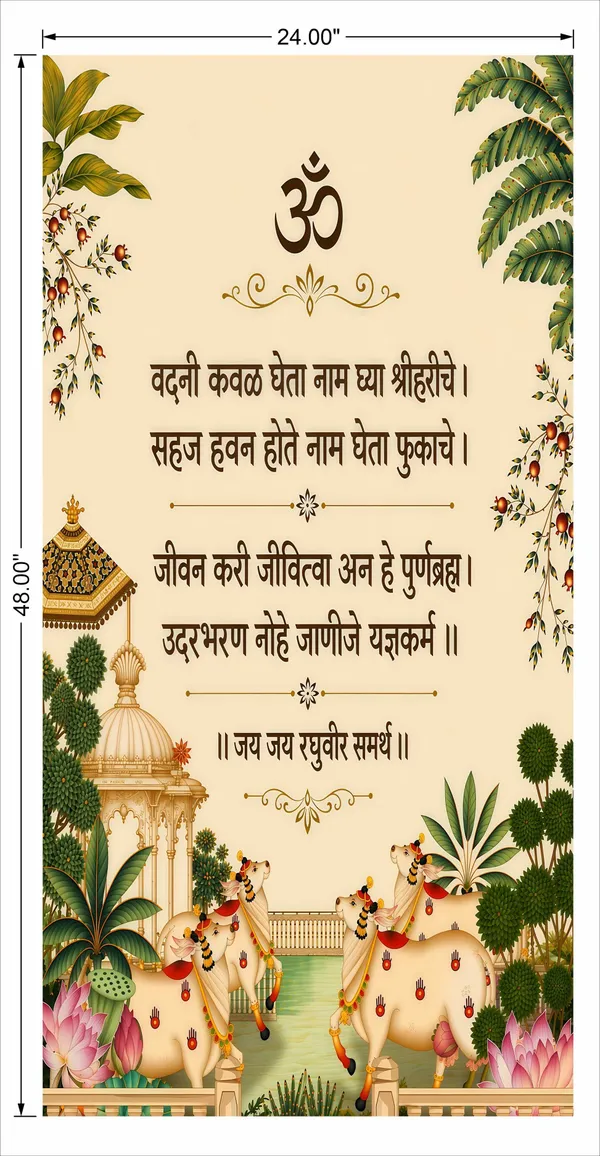 24.00"
48.00"
ॐ
वदनी कवळ घेता नाम घ्या श्रीहरीचे।
सहज हवन होते नाम घेता फुकाचे।
जीवन करी जीवित्वा अन हे पुर्णब्रह्म।
उदरभरण नोहे जाणीजे यज्ञकर्म ॥
॥ जय जय रघुवीर समर्थ ॥